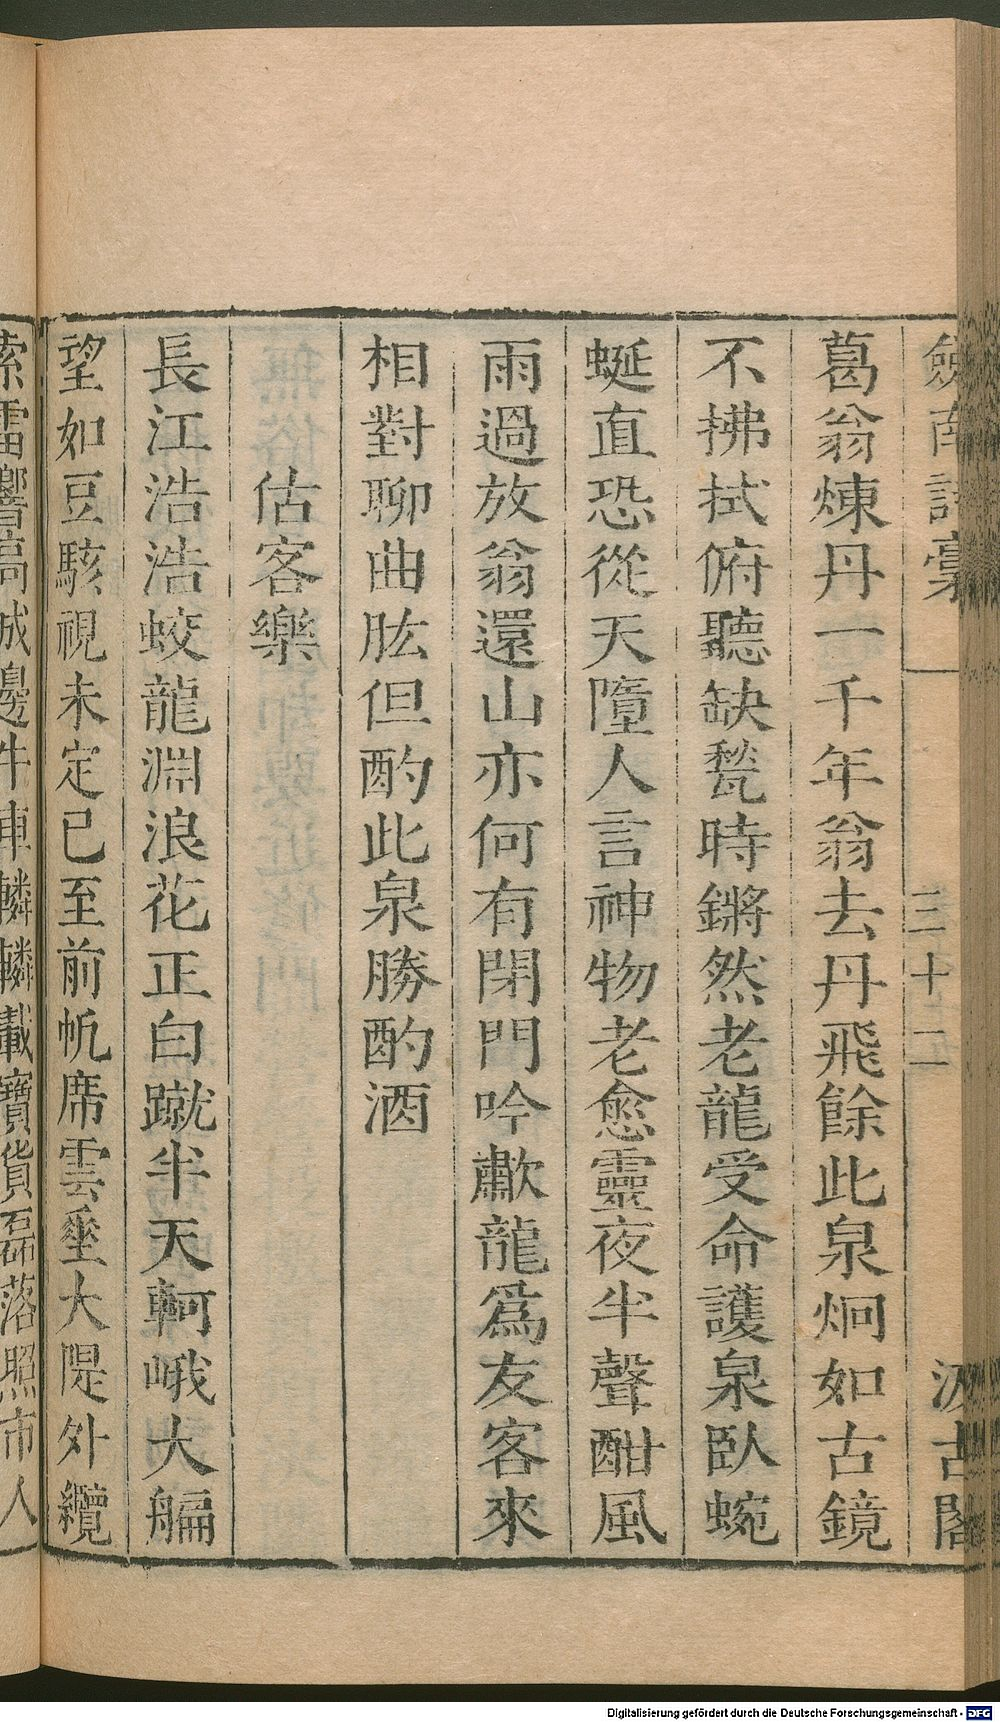 劍南詩稾
三十二
汲古閣
葛翁煉丹一千年翁去丹飛餘此泉炯如古鏡
不拂拭俯聽缺甃時鏘然老龍受命護泉臥蜿
蜒直恐從天墮人言神物老愈靈夜半聲酣風
雨過放翁還山亦何有閉門吟歗龍爲友客來
相對聊曲肱但酌此泉勝酌酒
估客樂
長江浩浩蛟龍淵浪花正白蹴半天軻峨大艑
望如豆駭視未定已至前帆席雲垂大隄外纜
索雷響高城邊牛車轔轔載寶貨磊落照市人
Digitalisierung gefördert durch die Deutsche Forschungsgemeinschaft - DFG